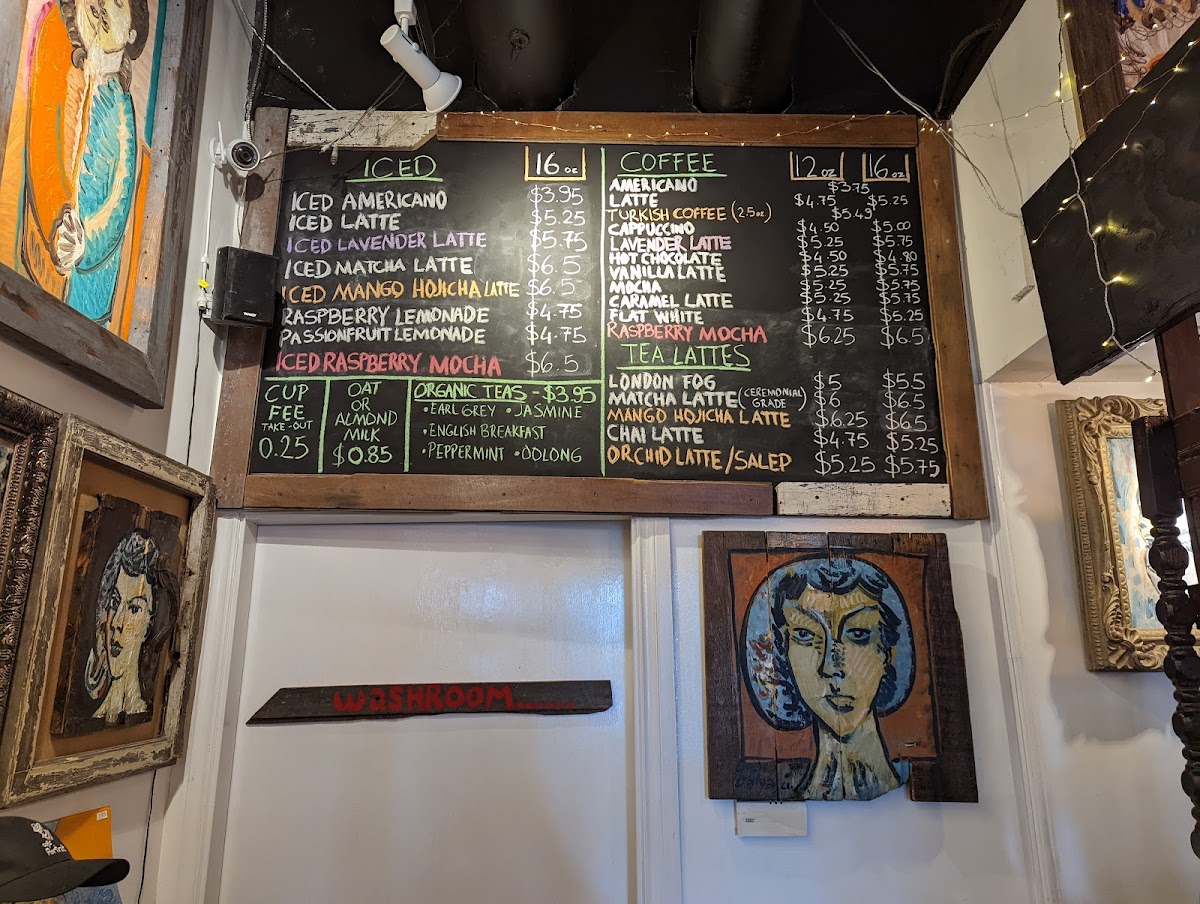 ICED 16 oz
ICED AMERICANO $3.95
ICED LATTE $5.25
ICED LAVENDER LATTE $5.75
ICED MATCHA LATTE $6.5
ICED MANGO HOJICHA LATTE $6.5
RASPBERRY LEMONADE $4.75
PASSIONFRUIT LEMONADE $4.75
ICED RASPBERRY MOCHA $6.5
CUP
FEE
TAKE-OUT
0.25
OAT
OR
ALMOND
MILK
$0.85
ORGANIC TEAS - $3.95
• EARL GREY • JASMINE
• ENGLISH BREAKFAST
• PEPPERMINT • OOLONG
COFFEE 12 oz 16 oz
AMERICANO $3.75
LATTE $4.75 $5.25
TURKISH COFFEE (2.5oz.) $5.49
CAPPUCCINO $4.50 $5.00
LAVENDER LATTE $5.25 $5.75
HOT CHOCOLATE $4.50 $4.80
VANILLA LATTE $5.25 $5.75
MOCHA $5.25 $5.75
CARAMEL LATTE $5.25 $5.75
FLAT WHITE $4.75 $5.25
RASPBERRY MOCHA $6.25 $6.5
TEA LATTES
LONDON FOG $5 $5.5
MATCHA LATTE (CEREMONIAL GRADE) $6 $6.5
MANGO HOJICHA LATTE $6.25 $6.5
CHAI LATTE $4.75 $5.25
ORCHID LATTE/SALEP $5.25 $5.75
WASHROOM......